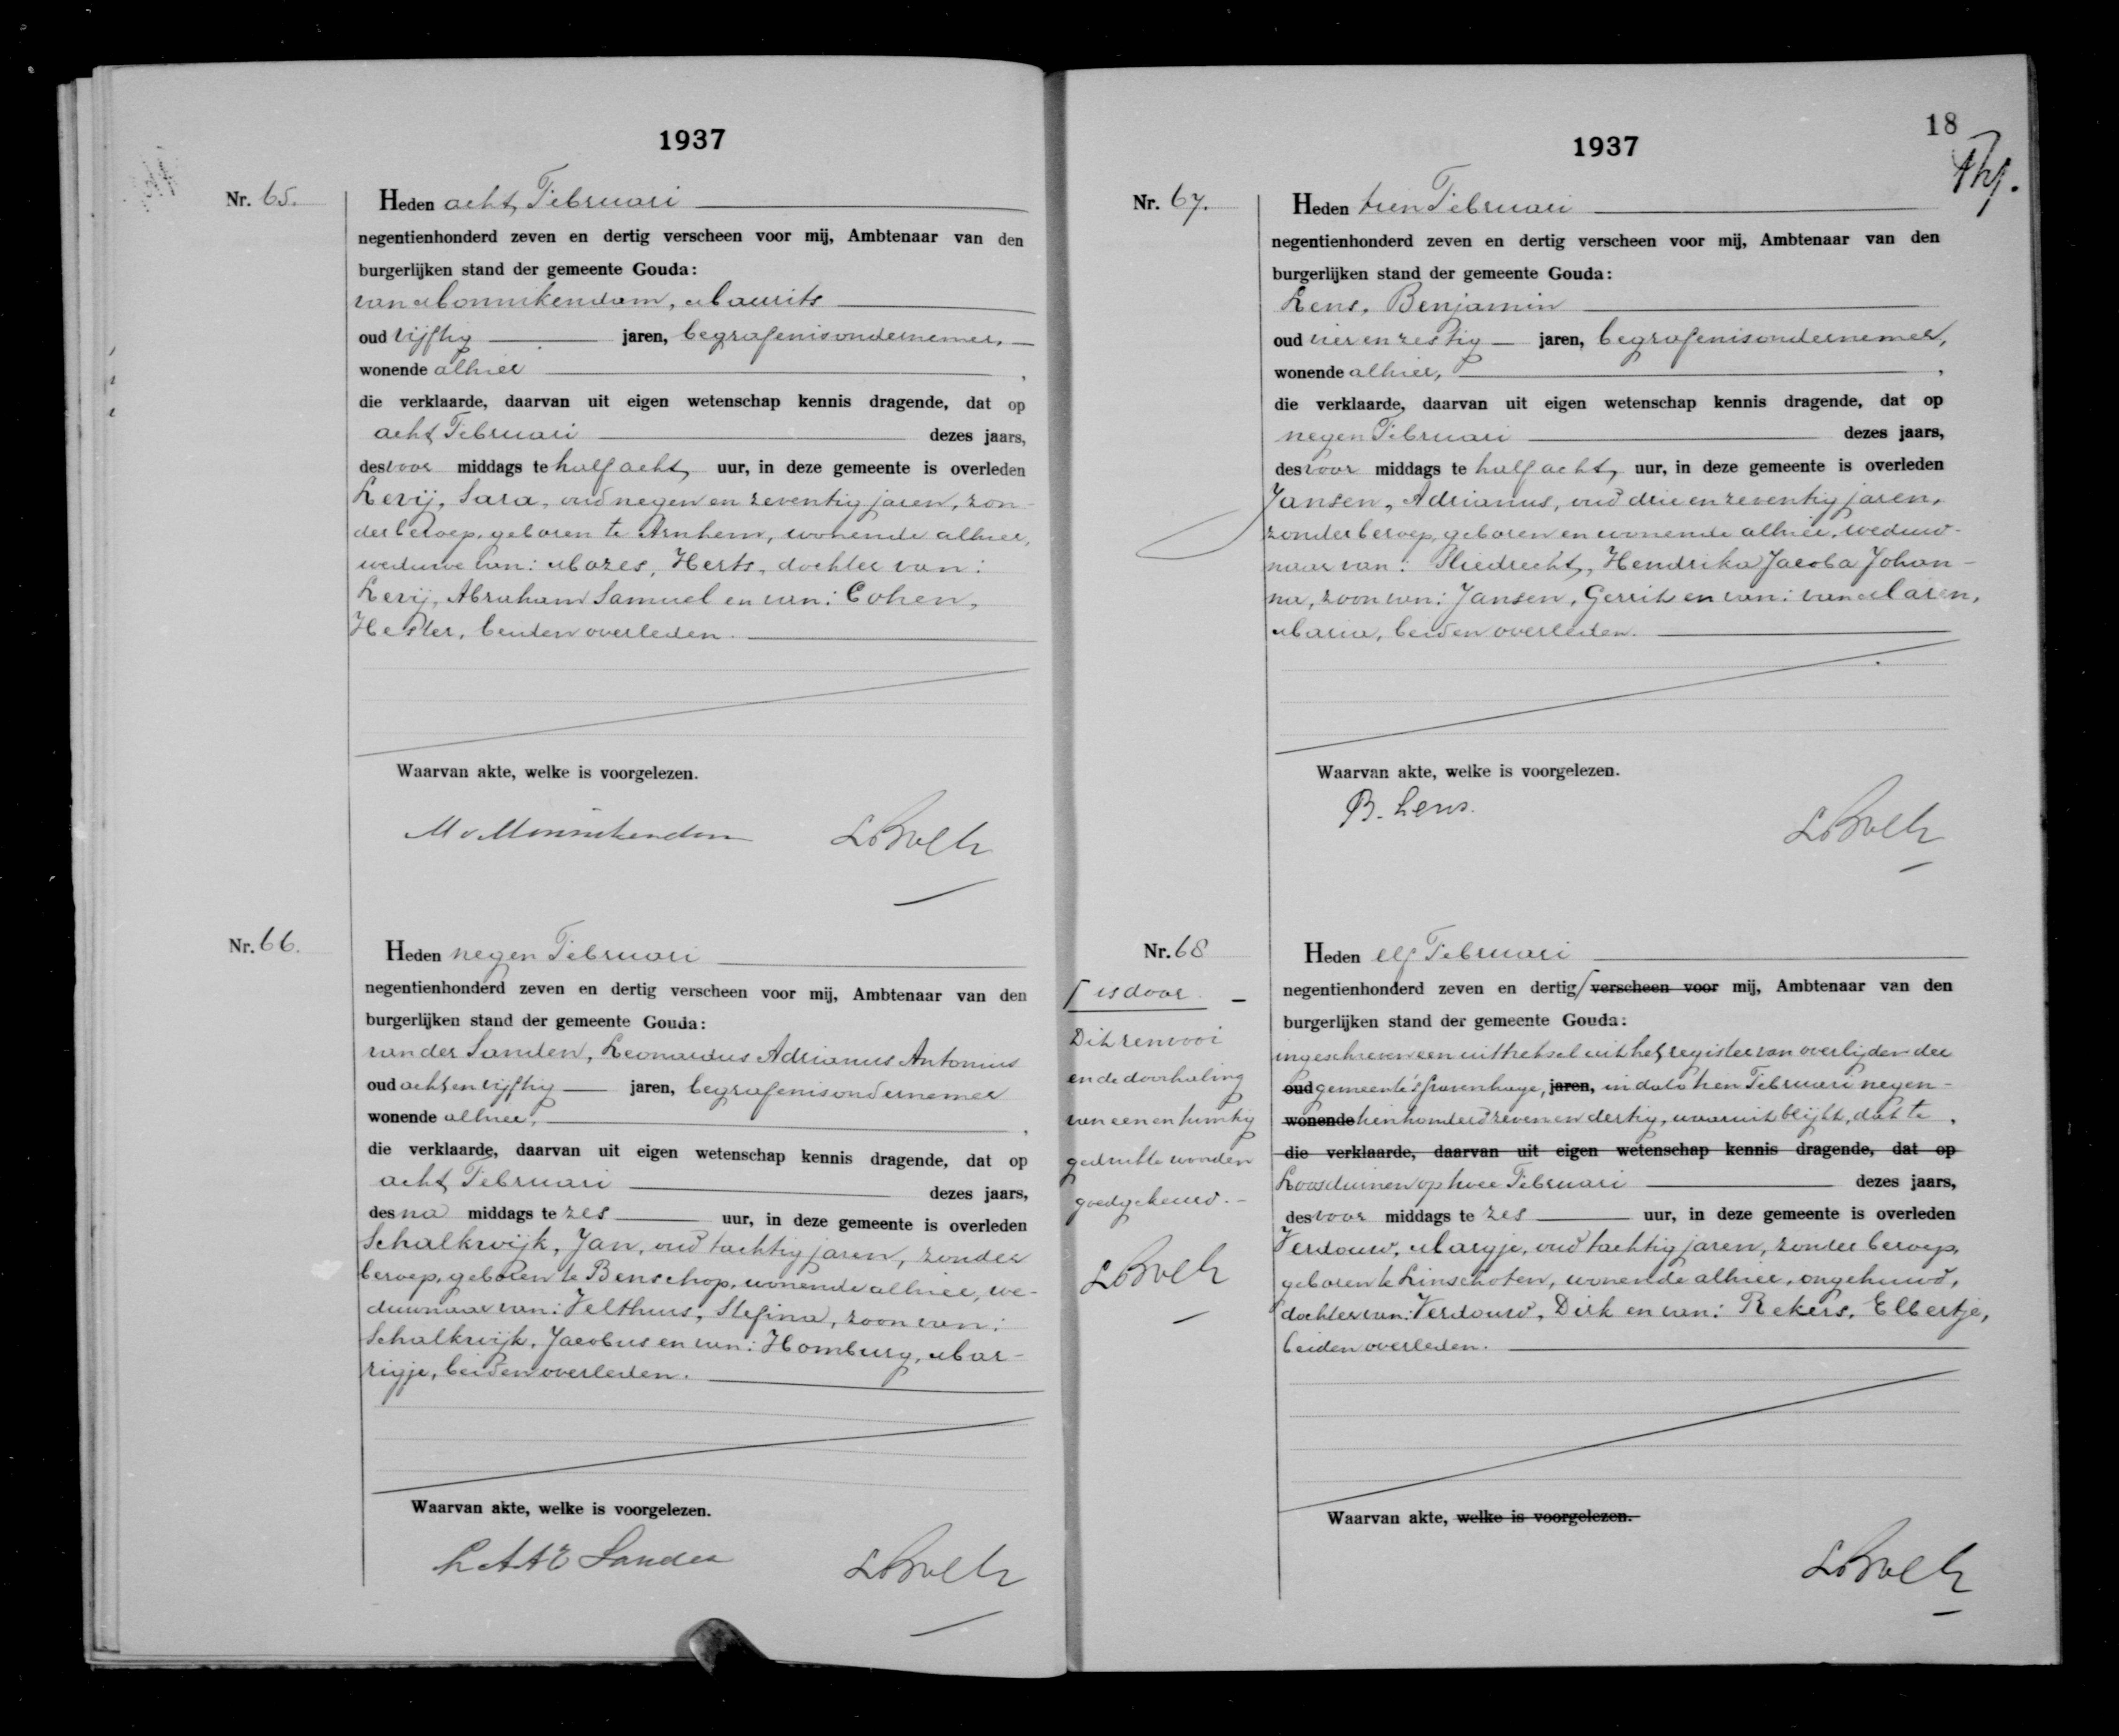 1937
Nr. 65.
Heden acht Februari
negentienhonderd zeven en dertig verscheen voor mij, Ambtenaar van den
burgerlijken stand der gemeente Gouda:
van Monnikendam, Maurits
oud vijftig jaren, begrafenisondernemer,
wonende alhier ,
die verklaarde, daarvan uit eigen wetenschap kennis dragende, dat op
acht Februari dezes jaars,
des voor middags te half acht, uur, in deze gemeente is overleden
Levij, Sara, oud negen en zeventig jaren, zon-
der beroep, geboren te Arnhem, wonende alhier,
weduwe van: Mozes, Herts, dochter van:
Levij, Abraham Samuel en van: Cohen,
Hester, beiden overleden.
Waarvan akte, welke is voorgelezen.
M v Monnikendam
Nr. 66.
Heden negen Februari
negentienhonderd zeven en dertig verscheen voor mij, Ambtenaar van den
burgerlijken stand der gemeente Gouda:
van der Sanden, Leonardus Adrianus Antonius
oud acht en vijftig jaren, begrafenisondernemer
wonende alhier, ,
die verklaarde, daarvan uit eigen wetenschap kennis dragende, dat op
acht Februari dezes jaars,
des na middags te zes uur, in deze gemeente is overleden
Schalkwijk, Jan, oud tachtig jaren, zonder
beroep, geboren te Benschop, wonende alhier, we-
duwnaar van: Velthuis, Stefina, zoon van:
Schalkwijk, Jacobus en van: Homburg, Mar-
rigje, beiden overleden.
Waarvan akte, welke is voorgelezen.
Sanden
18
1937
Nr. 67.
Heden tien Februari
negentienhonderd zeven en dertig verscheen voor mij, Ambtenaar van den
burgerlijken stand der gemeente Gouda:
Lens, Benjamin
oud vier en zestig jaren, begrafenisondernemer,
wonende alhier, ,
die verklaarde, daarvan uit eigen wetenschap kennis dragende, dat op
negen Februari dezes jaars,
des voor middags te half acht, uur, in deze gemeente is overleden
Jansen, Adrianus, oud drie en zeventig jaren,
zonder beroep, geboren en wonende alhier, weduw-
naar van: Sliedrecht, Hendrika Jacoba Johan-
na, zoon van: Jansen, Gerrit en van: van Maren,
Maria, beiden overleden.
Waarvan akte, welke is voorgelezen.
B. Lens.
Nr. 68
Heden elf Februari
negentienhonderd zeven en dertig/ verscheen voor mij, Ambtenaar van den
burgerlijken stand der gemeente Gouda:
ingeschreven een uittreksel uit het register van overlijden der
oud gemeente 's Gravenhage, jaren, in dato tien Februari negen-
wonende tienhonderd zeven en dertig, waaruit blijkt, dat te ,
die verklaarde, daarvan uit eigen wetenschap kennis dragende, dat op
Loosduinen op twee Februari dezes jaars,
des voor middags te zes uur, in deze gemeente is overleden
Verdouw, Margje, oud tachtig jaren, zonder beroep,
geboren te Linschoten, wonende alhier, ongehuwd,
dochter van: Verdouw, Dirk en van: Rekers, Elbertje,
beiden overleden.
Waarvan akte, welke is voorgelezen.
/ is door
Dit renvooi
en de doorhaling
van een en twintig
gedrukte woorden
goedgekeurd.